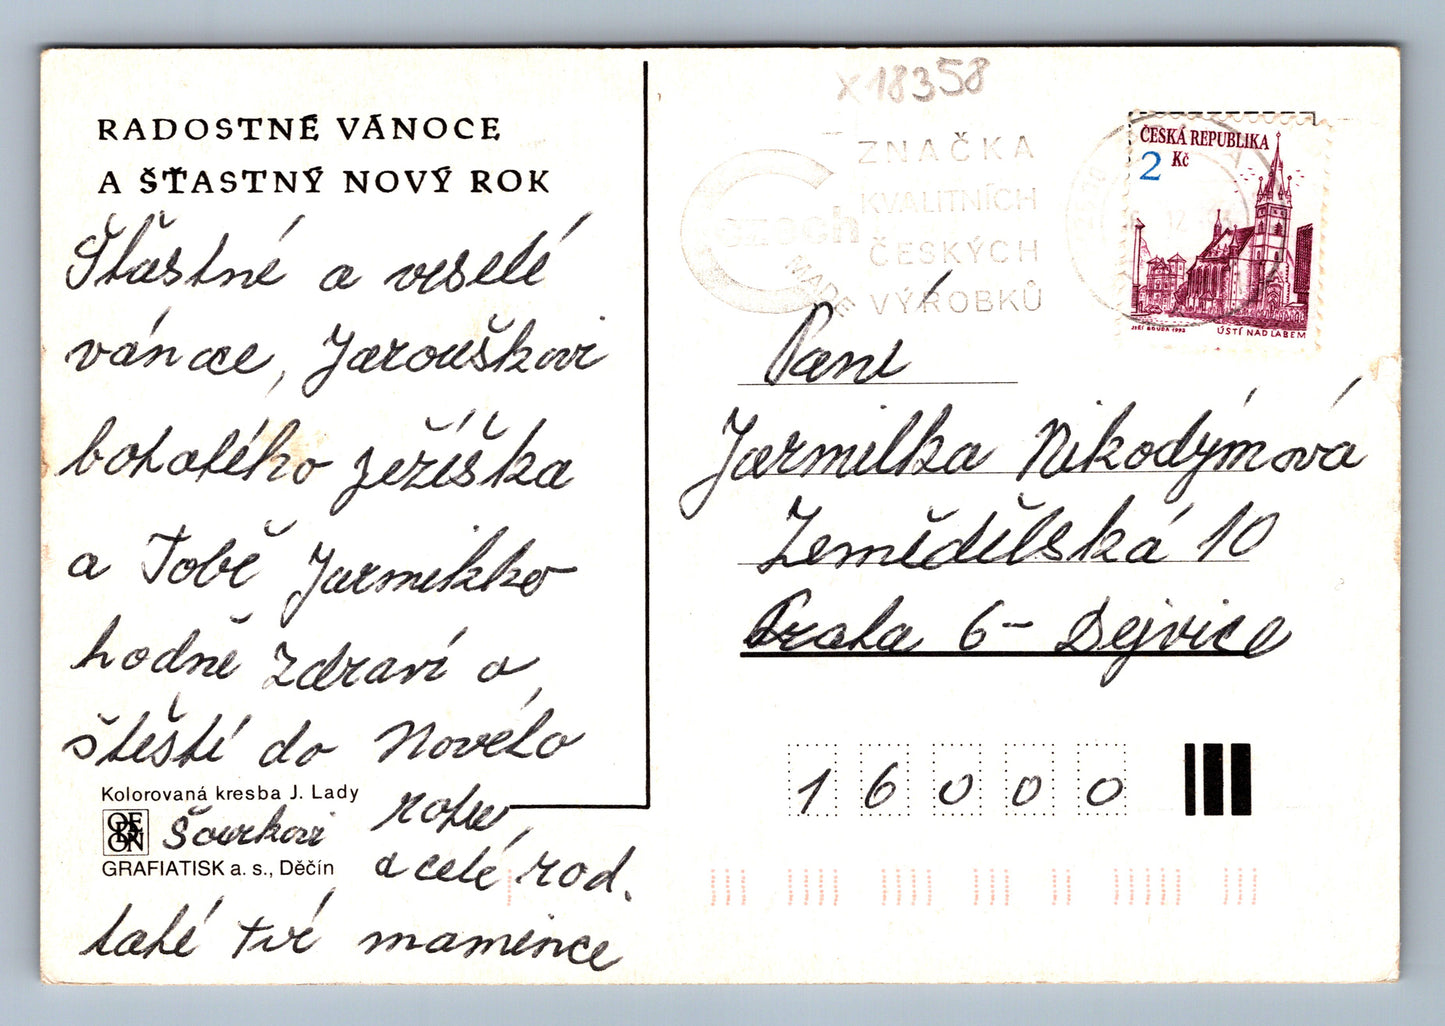 RADOSTNÉ VÁNOCE
A ŠŤASTNÝ NOVÝ ROK
Šťastné a veselé
vánoce, Jarouškovi
bohatého ježíška
a Tobě Jarmilko
hodně zdraví a
štěstí do Nového
roku,
a celé rod.
také tvé mamince
Šourkovi
Kolorovaná kresba J. Lady
GRAFIATISK a. s., Děčín
X18358
Czech
MADE
ZNAČKA
KVALITNÍCH
ČESKÝCH
VÝROBKŮ
ČESKÁ REPUBLIKA
2 Kč
JIŘÍ BOUDA 1993
ÚSTÍ NAD LABEM
Paní
Jarmilka Nikodýmová
Zemědělská 10
Praha 6 - Dejvice
16000